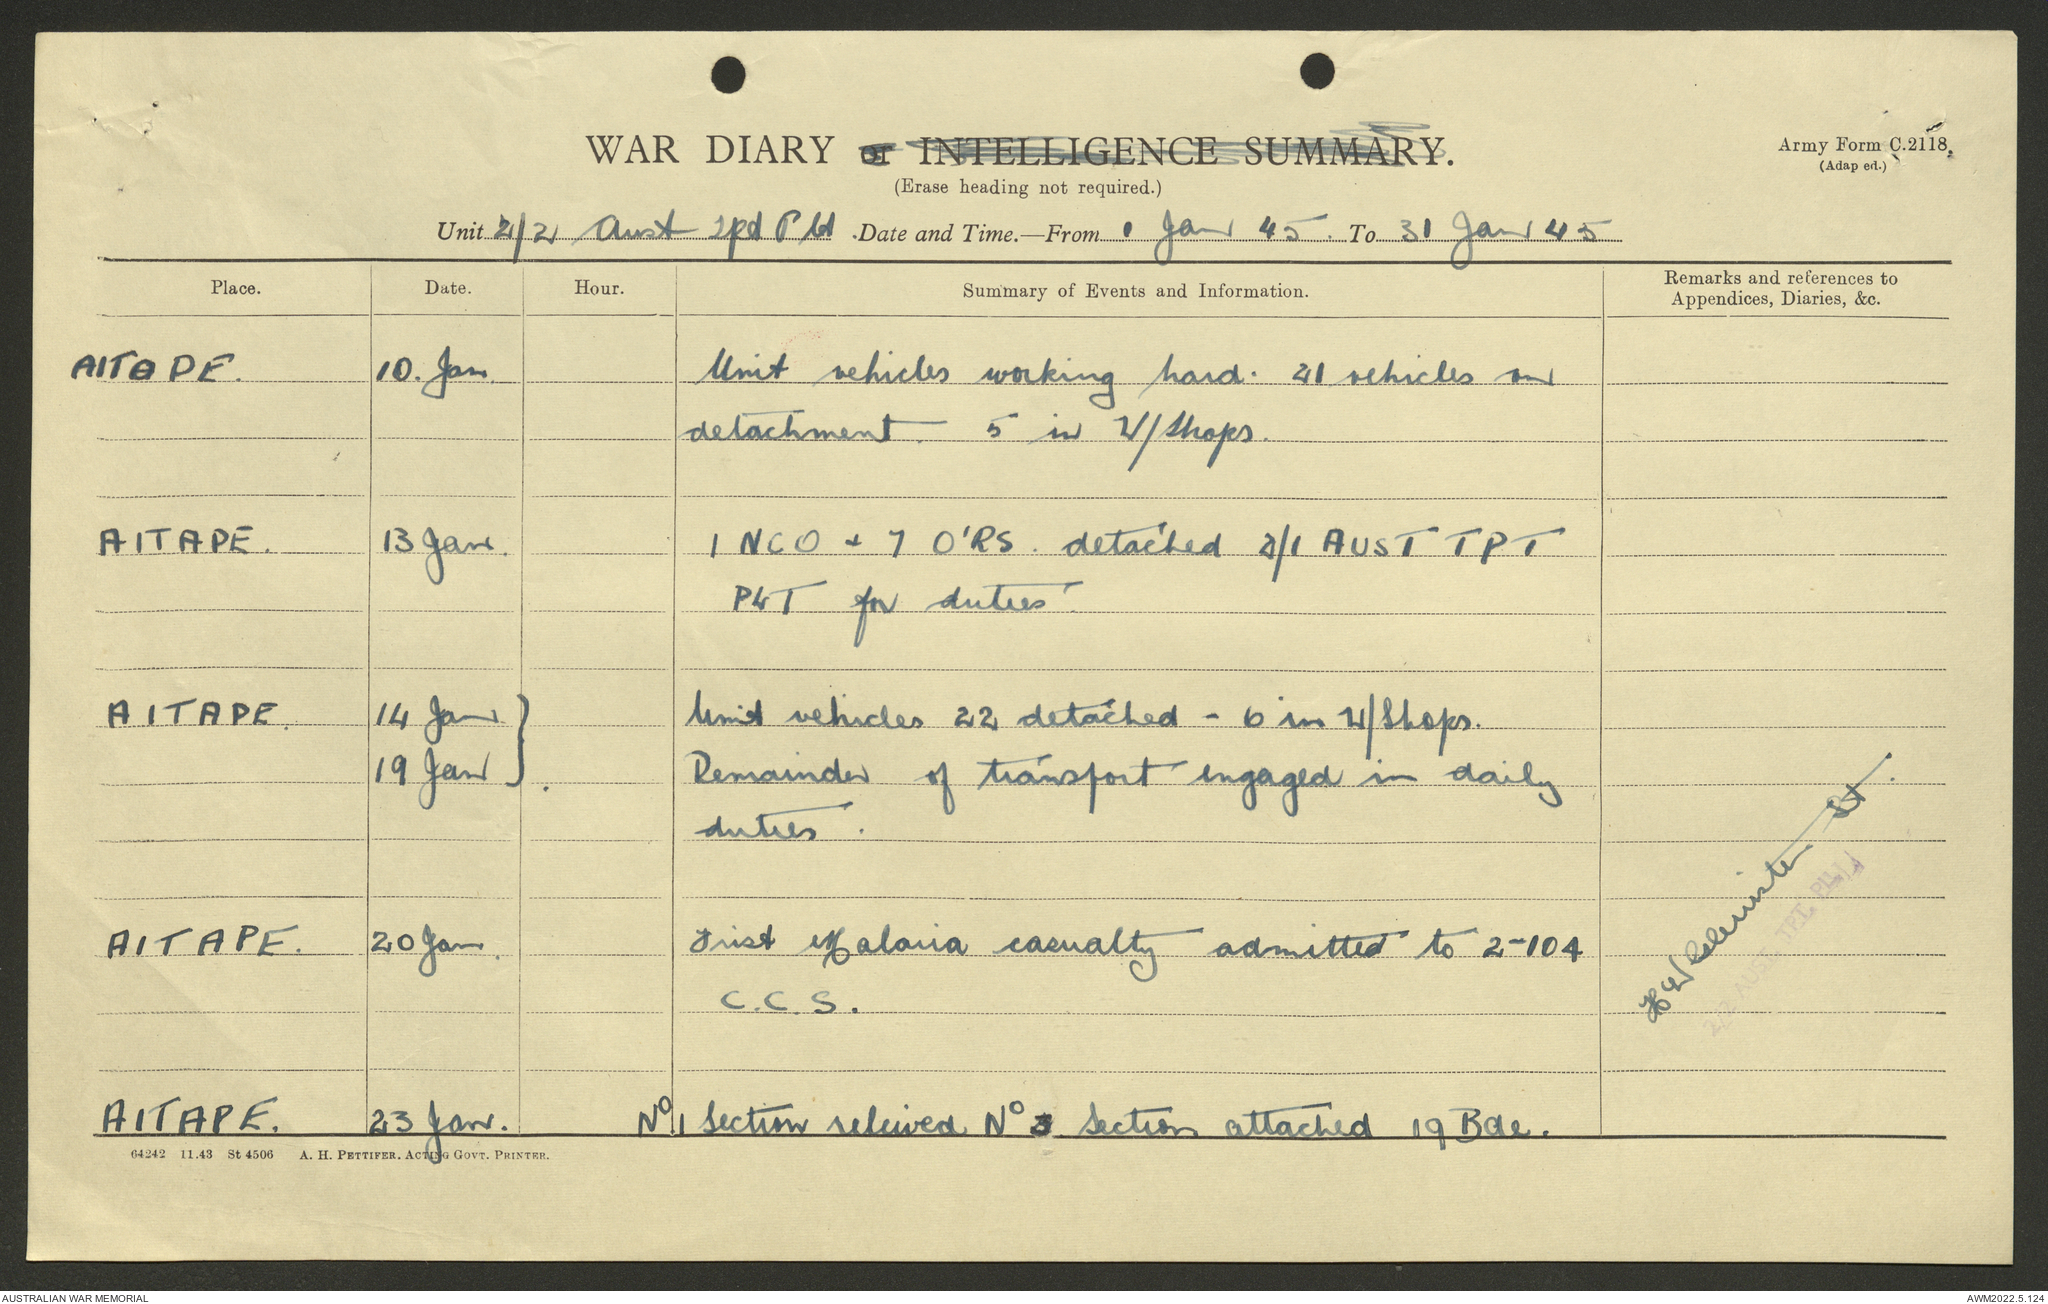 WAR DIARY or INTELLIGENCE SUMMARY.
Army Form C.2118.
(Adap ed.)
(Erase heading not required.)
Unit 2/2 Aust Tpt Plt Date and Time.—From 1 Jan 45. To 31 Jan 45
Place. Date. Hour. Summary of Events and Information. Remarks and references to Appendices, Diaries, &c.
AITAPE. 10. Jan. Unit vehicles working hard. 21 vehicles on
detachment - 5 in W/Shops.
AITAPE. 13 Jan. 1 NCO + 7 O'RS. detached 2/1 AUST TPT
PLT for duties.
AITAPE. 14 Jan } Unit vehicles 22 detached - 6 in W/Shops.
19 Jan Remainder of transport engaged in daily
duties.
AITAPE. 20 Jan. First Malaria casualty admitted to 2-104
C.C.S.
AITAPE. 23 Jan. No 1 Section relieved No 3 Section attached 19 Bde.
2/2 AUST. TPT. PLT.
64242 11.43 St 4506 A. H. PETTIFER. ACTING GOVT. PRINTER.
AUSTRALIAN WAR MEMORIAL
AWM2022.5.124